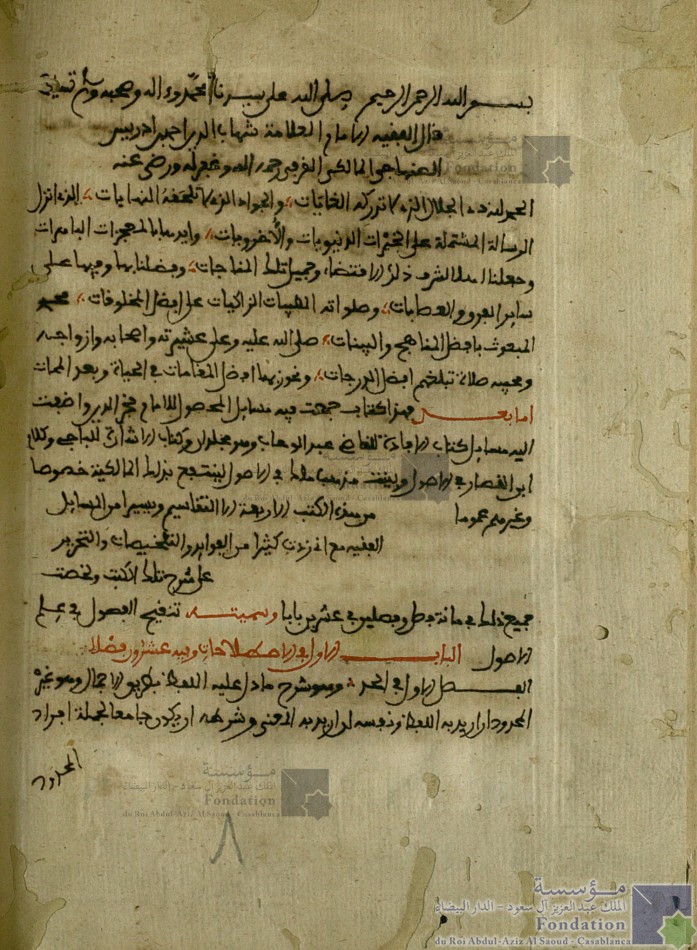 بسم الله الرحمن الرحيم صلى الله على سيدنا محمد وءاله وصحبه وسلم تسليما
قال الفقيه الامام العلامة شهاب الدين احمد بن ادريس
الصنهاجي المالكي القرافي رحمه الله وغفر له ورضي عنه
الحمد لله ذي الجلال الذي لا تدركه الغايات والجواد الذي لا تلحقه النهايات الذي انزل
الرسالة المشتملة على الخيرات الدنيويات والأخرويات وايدها بالمعجزات الباهرات
وجعلنا اهلا لشرف ذلك الاقتضاء وجميل تلك المناجات وفضلنا بها وفيها على
سائر الفرق والعصابات وصلواته الطيبات الزاكيات على افضل المخلوقات محمد
المبعوث بافضل المناهج والبينات صلى الله عليه وعلى عشيرته واصحابه وازواجه
ومحبيه صلاة تبلغهم افضل الدرجات ونفوز بها افضل المقامات في الحياة وبعد الممات
اما بعد فهذا كتاب جمعت فيه مسايل المحصول للامام فخر الدين واضفت
اليه مسايل كتاب الافادة للقاضي عبد الوهاب وهو مجلدان وكتاب الاشارة للباجي وكلام
ابن القصار في الاصول وبينت مذهب مالك في الاصول لينتفع بذلك المالكية خصوصا
وغيرهم عموما من هذه الكتب الاربعة الا التقاسيم ويسيرا من المسايل
الفقيه مع اني زدت كثيرا من الفوايد والتلخيصات والتحرير
على شرح تلك الكتب ولخصت
جميع ذلك في مائة فصل وفصلين في عشرين بابا وسميته تنقيح الفصول في علم
الاصول الباب الاول في الاصطلاحات وفيه عشرون فصلا
الفصل الاول في الحد وهو شرح ما دل عليه اللفظ بطريق الاجمال وهو غير
المحدود ان اريد به اللفظ ونفسه ان اريد به المعنى وشرطه ان يكون جامعا لجملة افراد
المحدود
٨
مؤسسة
الملك عبد العزيز آل سعود - الدار البيضاء
Fondation
du Roi Abdul-Aziz Al Saoud - Casablanca